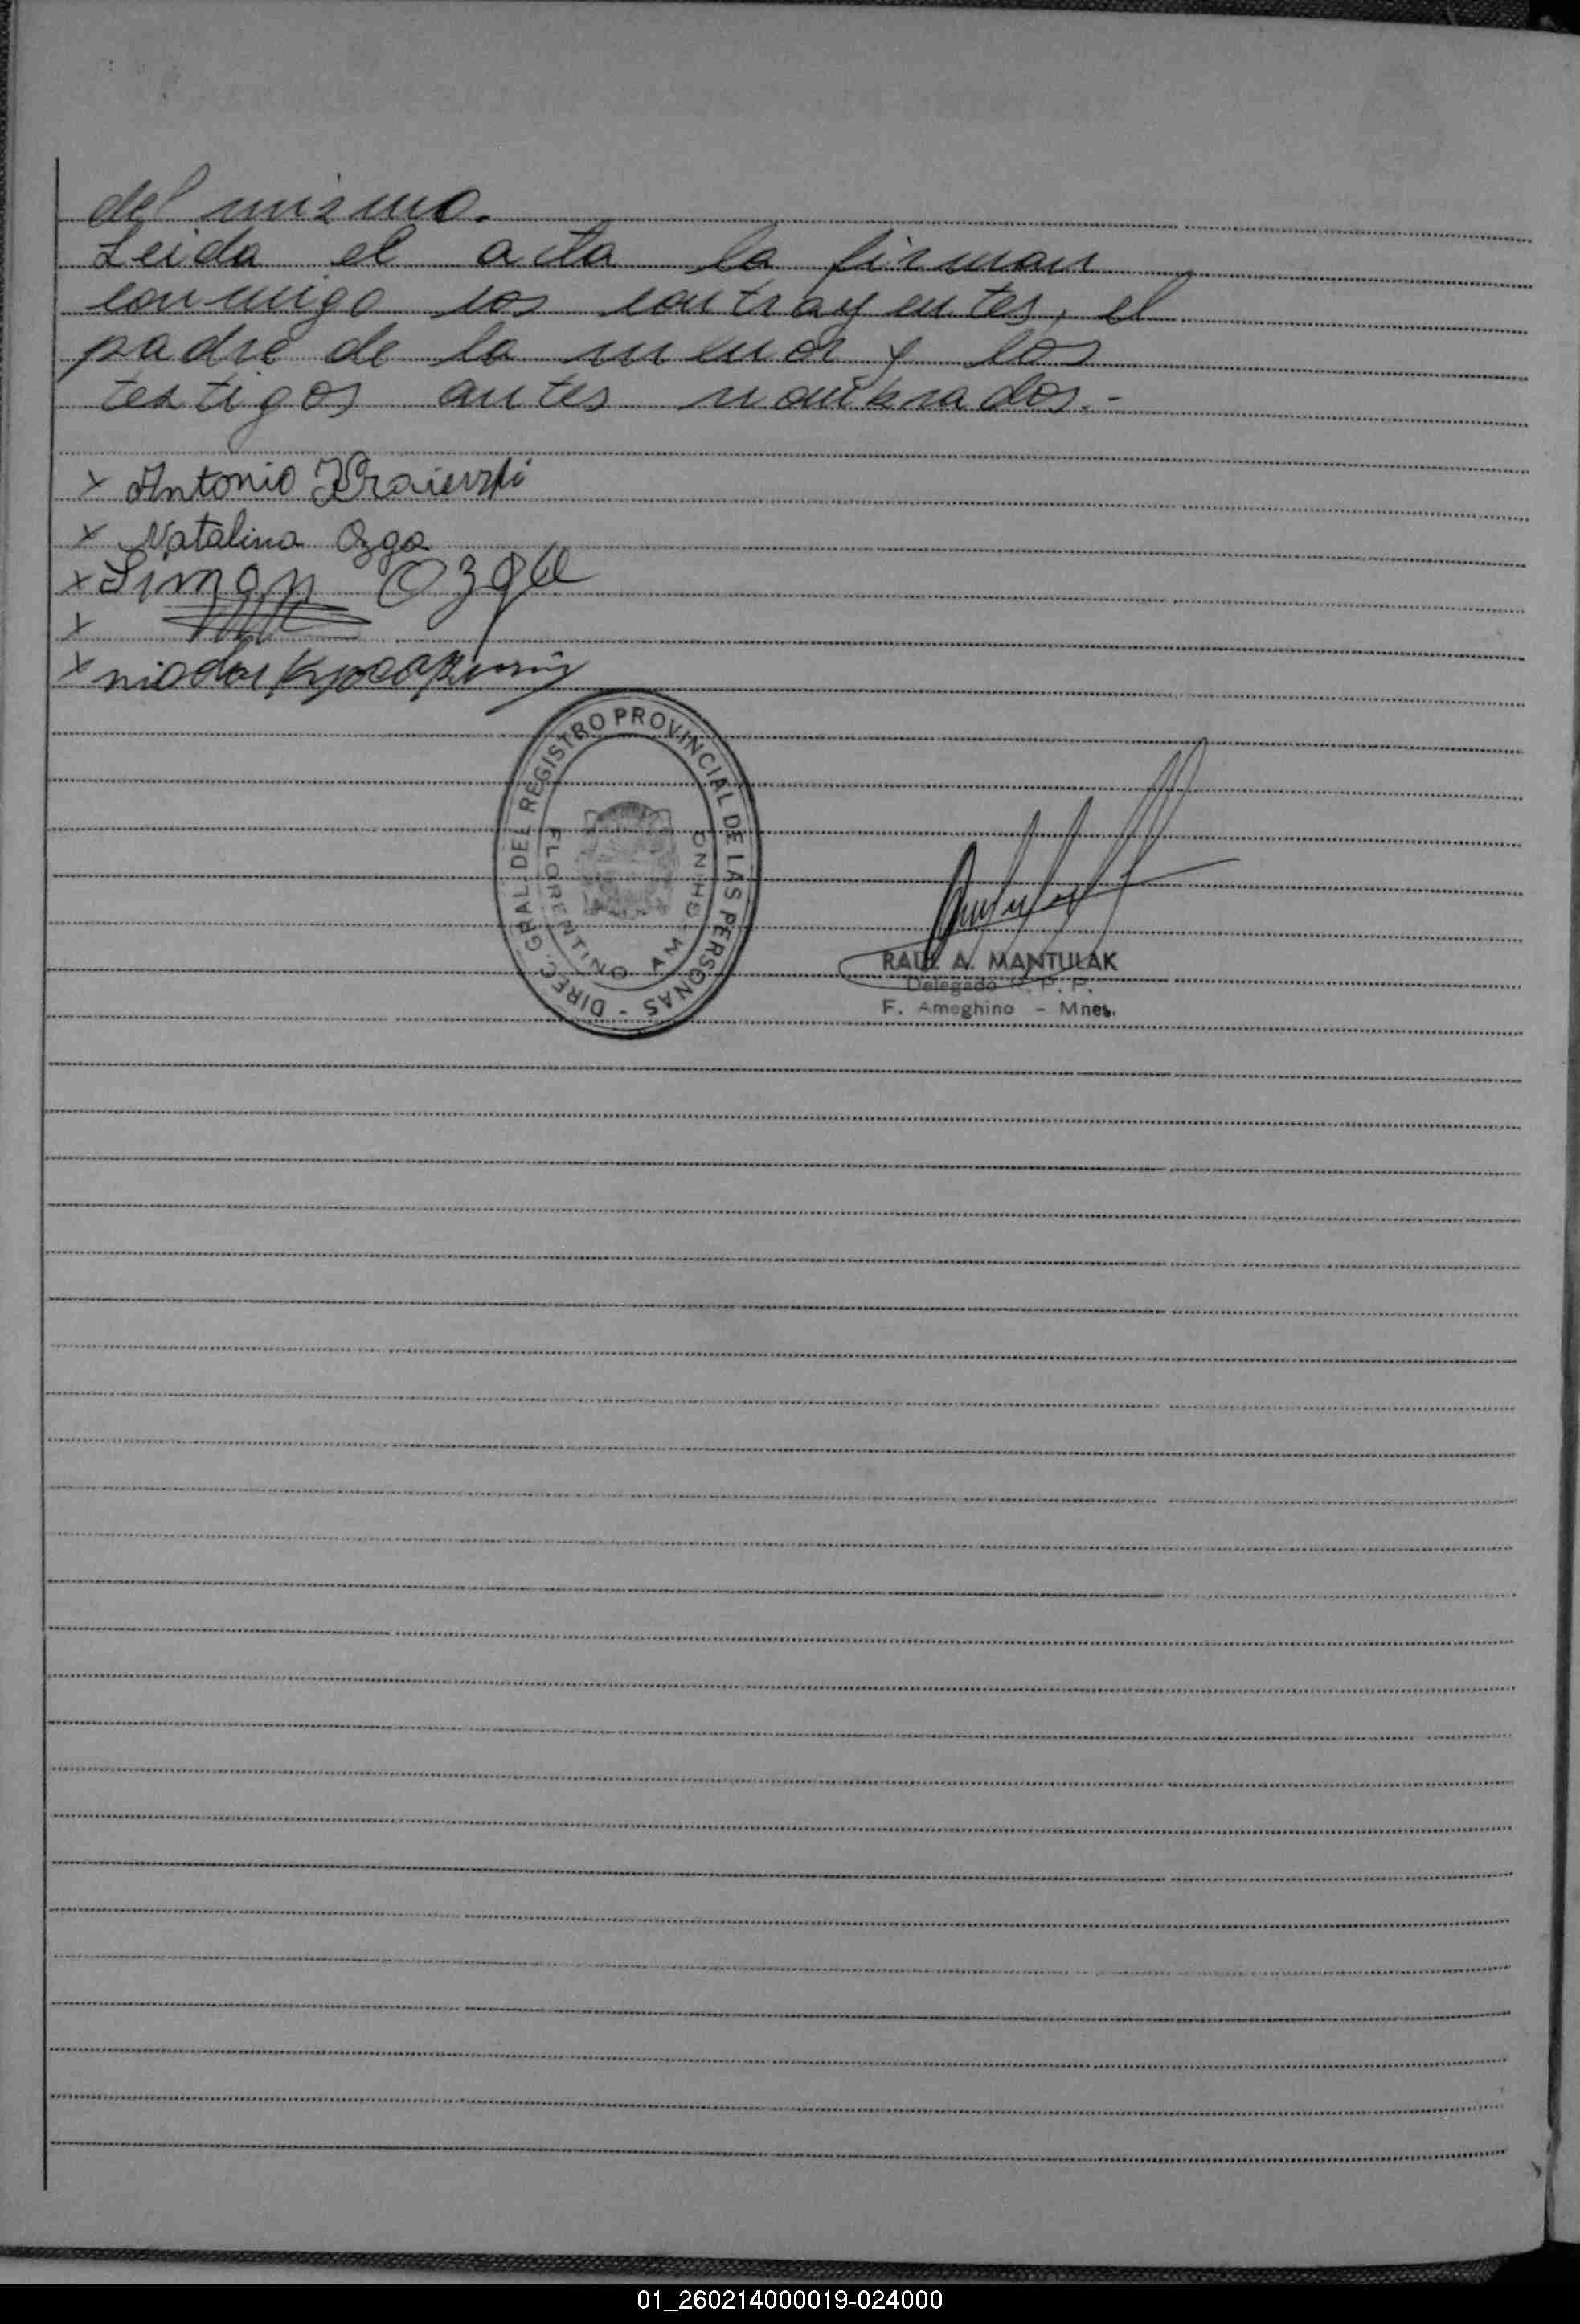 del mismo.
Leida el acta la firman
conmigo los contrayentes, el
padre de la menor y los
testigos antes nombrados.-
x Antonio
x Natalina Ozga
x Simon Ozga
x
x
DIREC. GRAL. DEL REGISTRO PROVINCIAL DE LAS PERSONAS -
FLORENTINO AMEGHINO
RAUL A. MANTULAK
Delegado R. P. P.
F. Ameghino - Mnes.
01_260214000019-024000